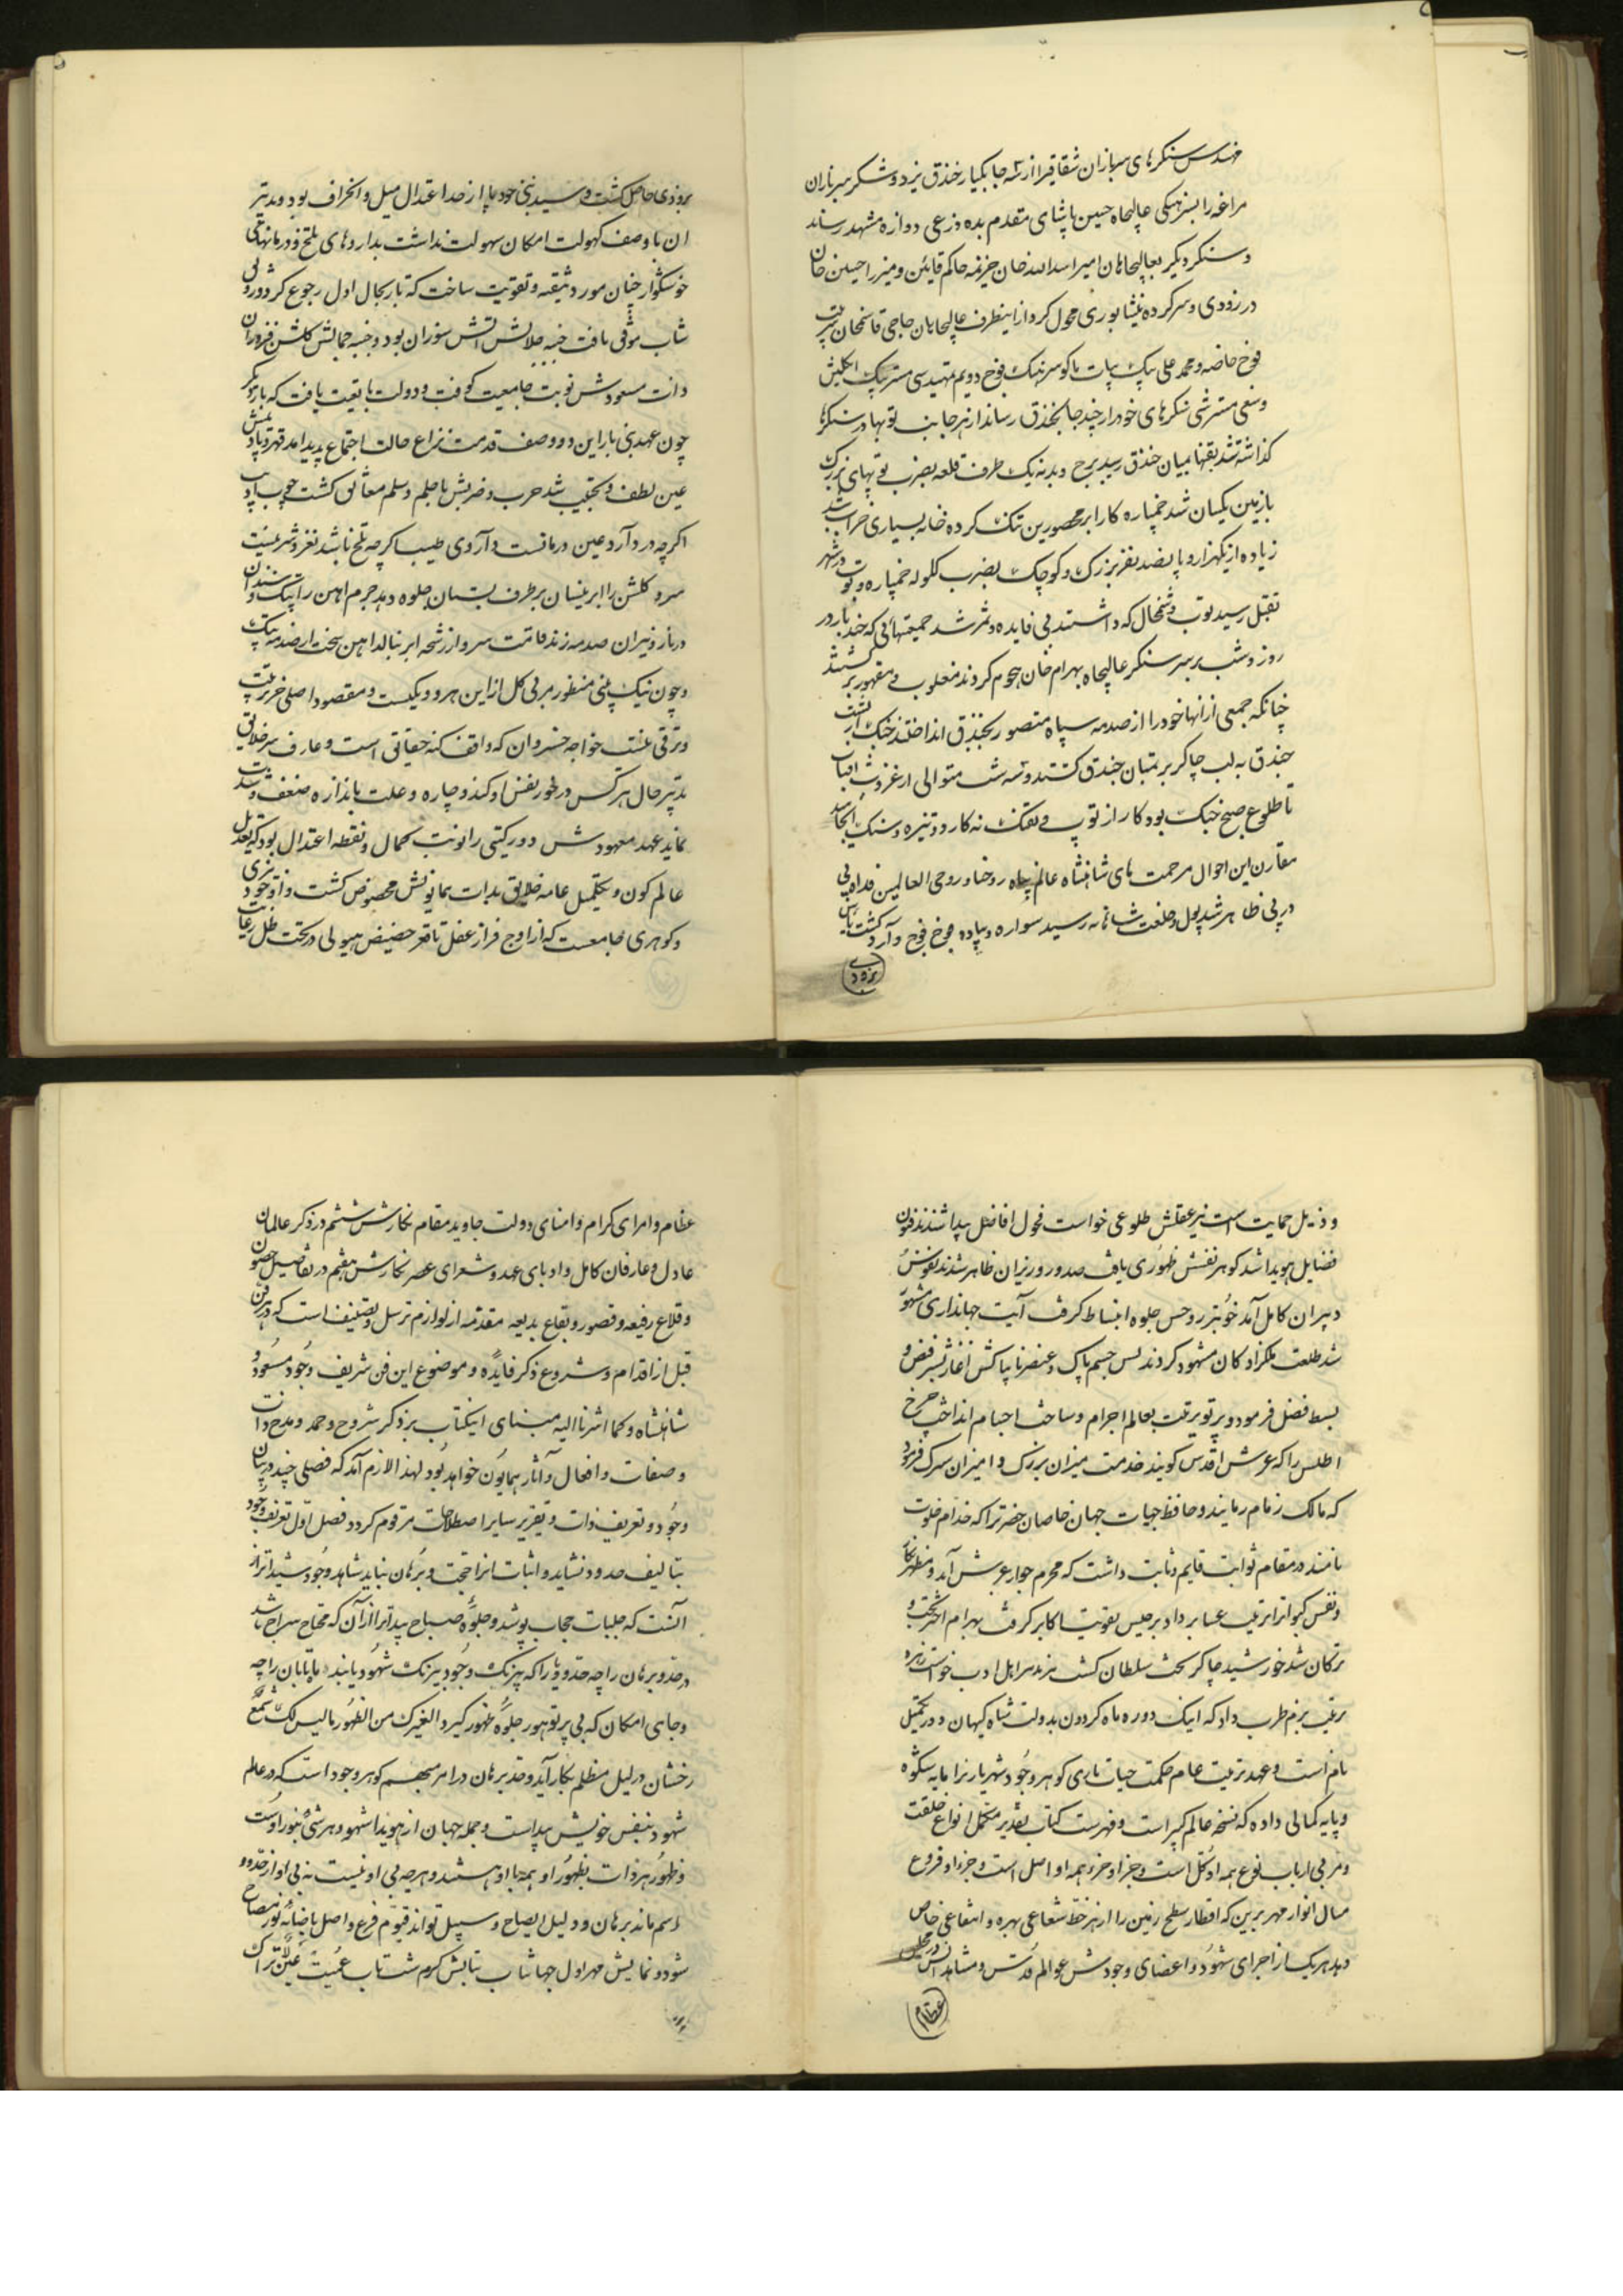 مهندس سنکرهای سربازان شقاقیرا از سه جا بکنار خندق نزد و شکر سربازان
مراغه را بسرهنکی عالیجاه حسین پاشای مقدم بده ذرعی دروازه مشهد رساند
و سنکر دیکر بعالیجاهان امیر اسدالله خان خزیمه حاکم قاین و میرزا حسین خان
در زودی و سرکرده نیشابوری محول کرد از اینطرف عالیجاهان حاجی قاسمخان سرتیپ
فوج خاصه و محمد علی بیک یات باکو سرهنک فوج دویم بمهندسی مستر بیک انکلیش
وسعی مستر شی سنکرهای خود را از چند جا بخندق رساندند از هر جانب توبها در سنکرها
کذاشته شد نقبها بمیان خندق رسید برج و بدنه یک طرف قلعه بضرب توپهای بزرک
با زمین یکسان شد خمپاره کار ابر محصورین تنک کرده خانه بسیاری خراب شد
زیاده از یکهزار و پانصد نفر بزرک و کوچک بضرب کلوله خمپاره و توپ در شهر
بقتل رسید توب و شمخال که داشتند بی فایده و ثمر شد جمعیتهائی که چند بار در
روز و شب بر سر سنکر عالیجاه بهرام خان هجوم کردند مغلوب و مقهور برکشتند
چنانکه جمعی از آنها خود را از صدمه سپاه منصور بخندق انداختند
خندق به لب چاکر بریتمان خندق کشتند و سه شب متوالی از غروب افتاب
تا طلوع صبح جنک بود کار از توپ و تفنک نه کارد و نیزه و سنک انجامید
مقارن این احوال مرحمت های شاهنشاه عالم پناه روحنا و روحی العالمین فداه پی
در پی ظاهر شد پول و خلعت شاهانه رسید سواره و پیاده فوج فوج وارد کشت
بزودی
بزودی حاصل کشت و رسید بنی خود پا از حد اعتدال میل و انحراف بود و مدتر
ان با وصف کهولت امکان سهولت نداشت بداروهای تلخ و درمانهای
خوشکوار چنان مورد تنقیه و تقویت ساخت که باز بحال اول رجوع کرد و رونقی
شاب موقی یافت جنبه جلالش اتش سوزان بود و جنبه جمالش کلشن فروزان
ذات مسعودش نوبت جامعیت کوفت و دولت بابعیت یافت که بار دیکر
چون عهد بنی باز این دو وصف قدمت نزاع حالت اجتماع پدید امد قهر و تادیبش
عین لطف و تحبیب شد حرب و ضربش با حلم و سلم معانق کشت
اکر چه درد آرد عین درمانست داروی طبیب اکرچه تلخ باشد نغز و شیرینست
سرو کلشن را ابر نیسان بر طرف بستان جلوه دهد جرم اهن را پتک و سندان
در بازو نیران صدمه زند قامت سرو از رشحه ابر ببالد اهن سخت از صدمه پتک
و چون نیک بینی منظور مربی کل از این هر دو یکیست و مقصود اصلی جز تربیت
و ترقی نیست خواجه خسروان که واقف کنه حقایق است و عارف سر خلایق
تدبیر حال هر کس در خور نفس او کند و چاره و علت باندازه ضعف و شدت
نماید عهد معهودش دور کیتی را نوبت کمال و نقطه اعتدال بود که بعدیل
عالم کون و بتکمیل عامه خلایق بذات همایونش مخصوص کشت و از وجود
و کوهری جامعست که از اوج فراز عقل تا قعر حضیض هیولی در تحت ظل رعایت
و ذیل حمایت است نیر عقلش طلوعی خواست فحول افاضل پیدا شدند فنون
فضایل هویدا شد کوهر نفسش ظهوری یافت صدور و وزیران ظاهر شدند نفوس
دبیران کامل آمد خوبتر رو حس جلوه انبساط کرفت آیت جهانداری مشهور
شد طلعت ملکزادکان مشهود کردند پس جسم پاک و عنصر تابناکش آغاز نشر فیض و
بسط فضل فرمود و پرتو تربیت بعالم اجرام و ساحت اجسام انداخت چرخ
اطلس را که عرش اقدس کویند خدمت میزان بزرک و امیران سترک فرمود
که مالک زمام رمایند و حافظ حیات جهان خاصان حضرترا که خدام خلوت
نامند در مقام ثوابت قایم و ثابت داشت که محرم جوار عرش آمد و منظر
و نفس کیوانرا ترتیب عساکر داد برجیس تقویت اکابر کرفت بهرام
ترکان شد خورشید چاکر تخت سلطان کشت هنر اهل ادب خواست زهره
ترتیب بزم طرب داد که اینک دوره ماه کردون بدولت شاه کیهان در تکمیل
نام است و عهد تربیت عام حکمت حیات باری کوهر وجود شهریار را پایه شکوه
و پایه کمالی داده که نسخه عالم کبیر است و فهرست کتاب تقدیر مکمل انواع خلقت
و مربی ارباب نوع همه او کل است و جز او جزء همه او اصل است و جز او فروع
مثال انوار مهر برین که اقطار سطح زمین را از هر خط شعاعی بهره و انتفاعی خاص
دهد هر یک از اجرای شهود و اعضای وجودش عوالم قدس و مشاهد انس
عظام
عظام و امرای کرام و امنای دولت جاوید مقام نکارش ششم در ذکر عالمان
عادل و عارفان کامل و ادبای عهد و شعرای عصر نکارش هفتم در تفاصیل حصون
و قلاع رفیعه و قصور و بقاع بدیعه مقدمه از لوازم ترسل و تصنیف است که در هر فن
قبل از اقدام و شروع ذکر فایده و موضوع این فن شریف وجود مسعود
شاهنشاه و کما اشرنا الیه مبنای اینکتاب بر ذکر شروح و حمد و مدح ذات
و صفات و افعال و آثار همایون خواهد بود لهذا لازم آمد که فصلی چند در بیان
وجود و تعریف ذات و تقریر سایر اصطلاحات مرقوم کردد فصل اول تعریف وجود
بتالیف حدود نشاید و اثبات انرا حجت و برهان نباید شاهد وجود شیداتر از
آنست که جلباب حجاب پوشد و جلوه صباح پیداتر از آن که محتاج سراج باشد
در حد و برهان را چه حد و پایه را که بیرنک وجود بیرنک شهود یابند مایابان را چه
و جای امکان که بی پرتو هور جلوه ظهور کیرد الغیرک من الظهور ما لیس لک شمع
رخشان در لیل مظلم بکار آید و حد برهان در امر مبهم کوهر وجود است که در عالم
شهود بنفس خویش پیداست و جمله جهان از او هویدا شهود هر شیء بنور اوست
و ظهور هر ذات بظهور او همه با او هستند و هر چه بی او نیست نه بی او از حدود
اسم ماند برهان و دلیل ایضاح و سبیل تواند قیوم فرع و اصل باضائه نور مصباح
شود و نمایش مهر اول جهانتاب بتابش کرم شب تاب عمیت عین لا تراک